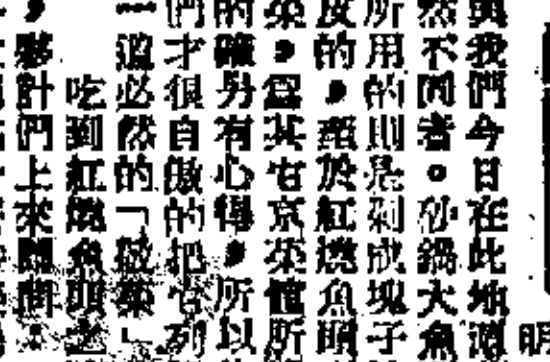 明
與我們今日在此地酒
然不同者。砂鍋大魚
所用的則是剁成塊子
皮的,至於紅燒魚頭
菜,為其它京菜館所
的確另有心得,所以
們才很自傲的把它列
一道必然的「敬菜」
吃到紅燒魚頭
,夥計們上來問: